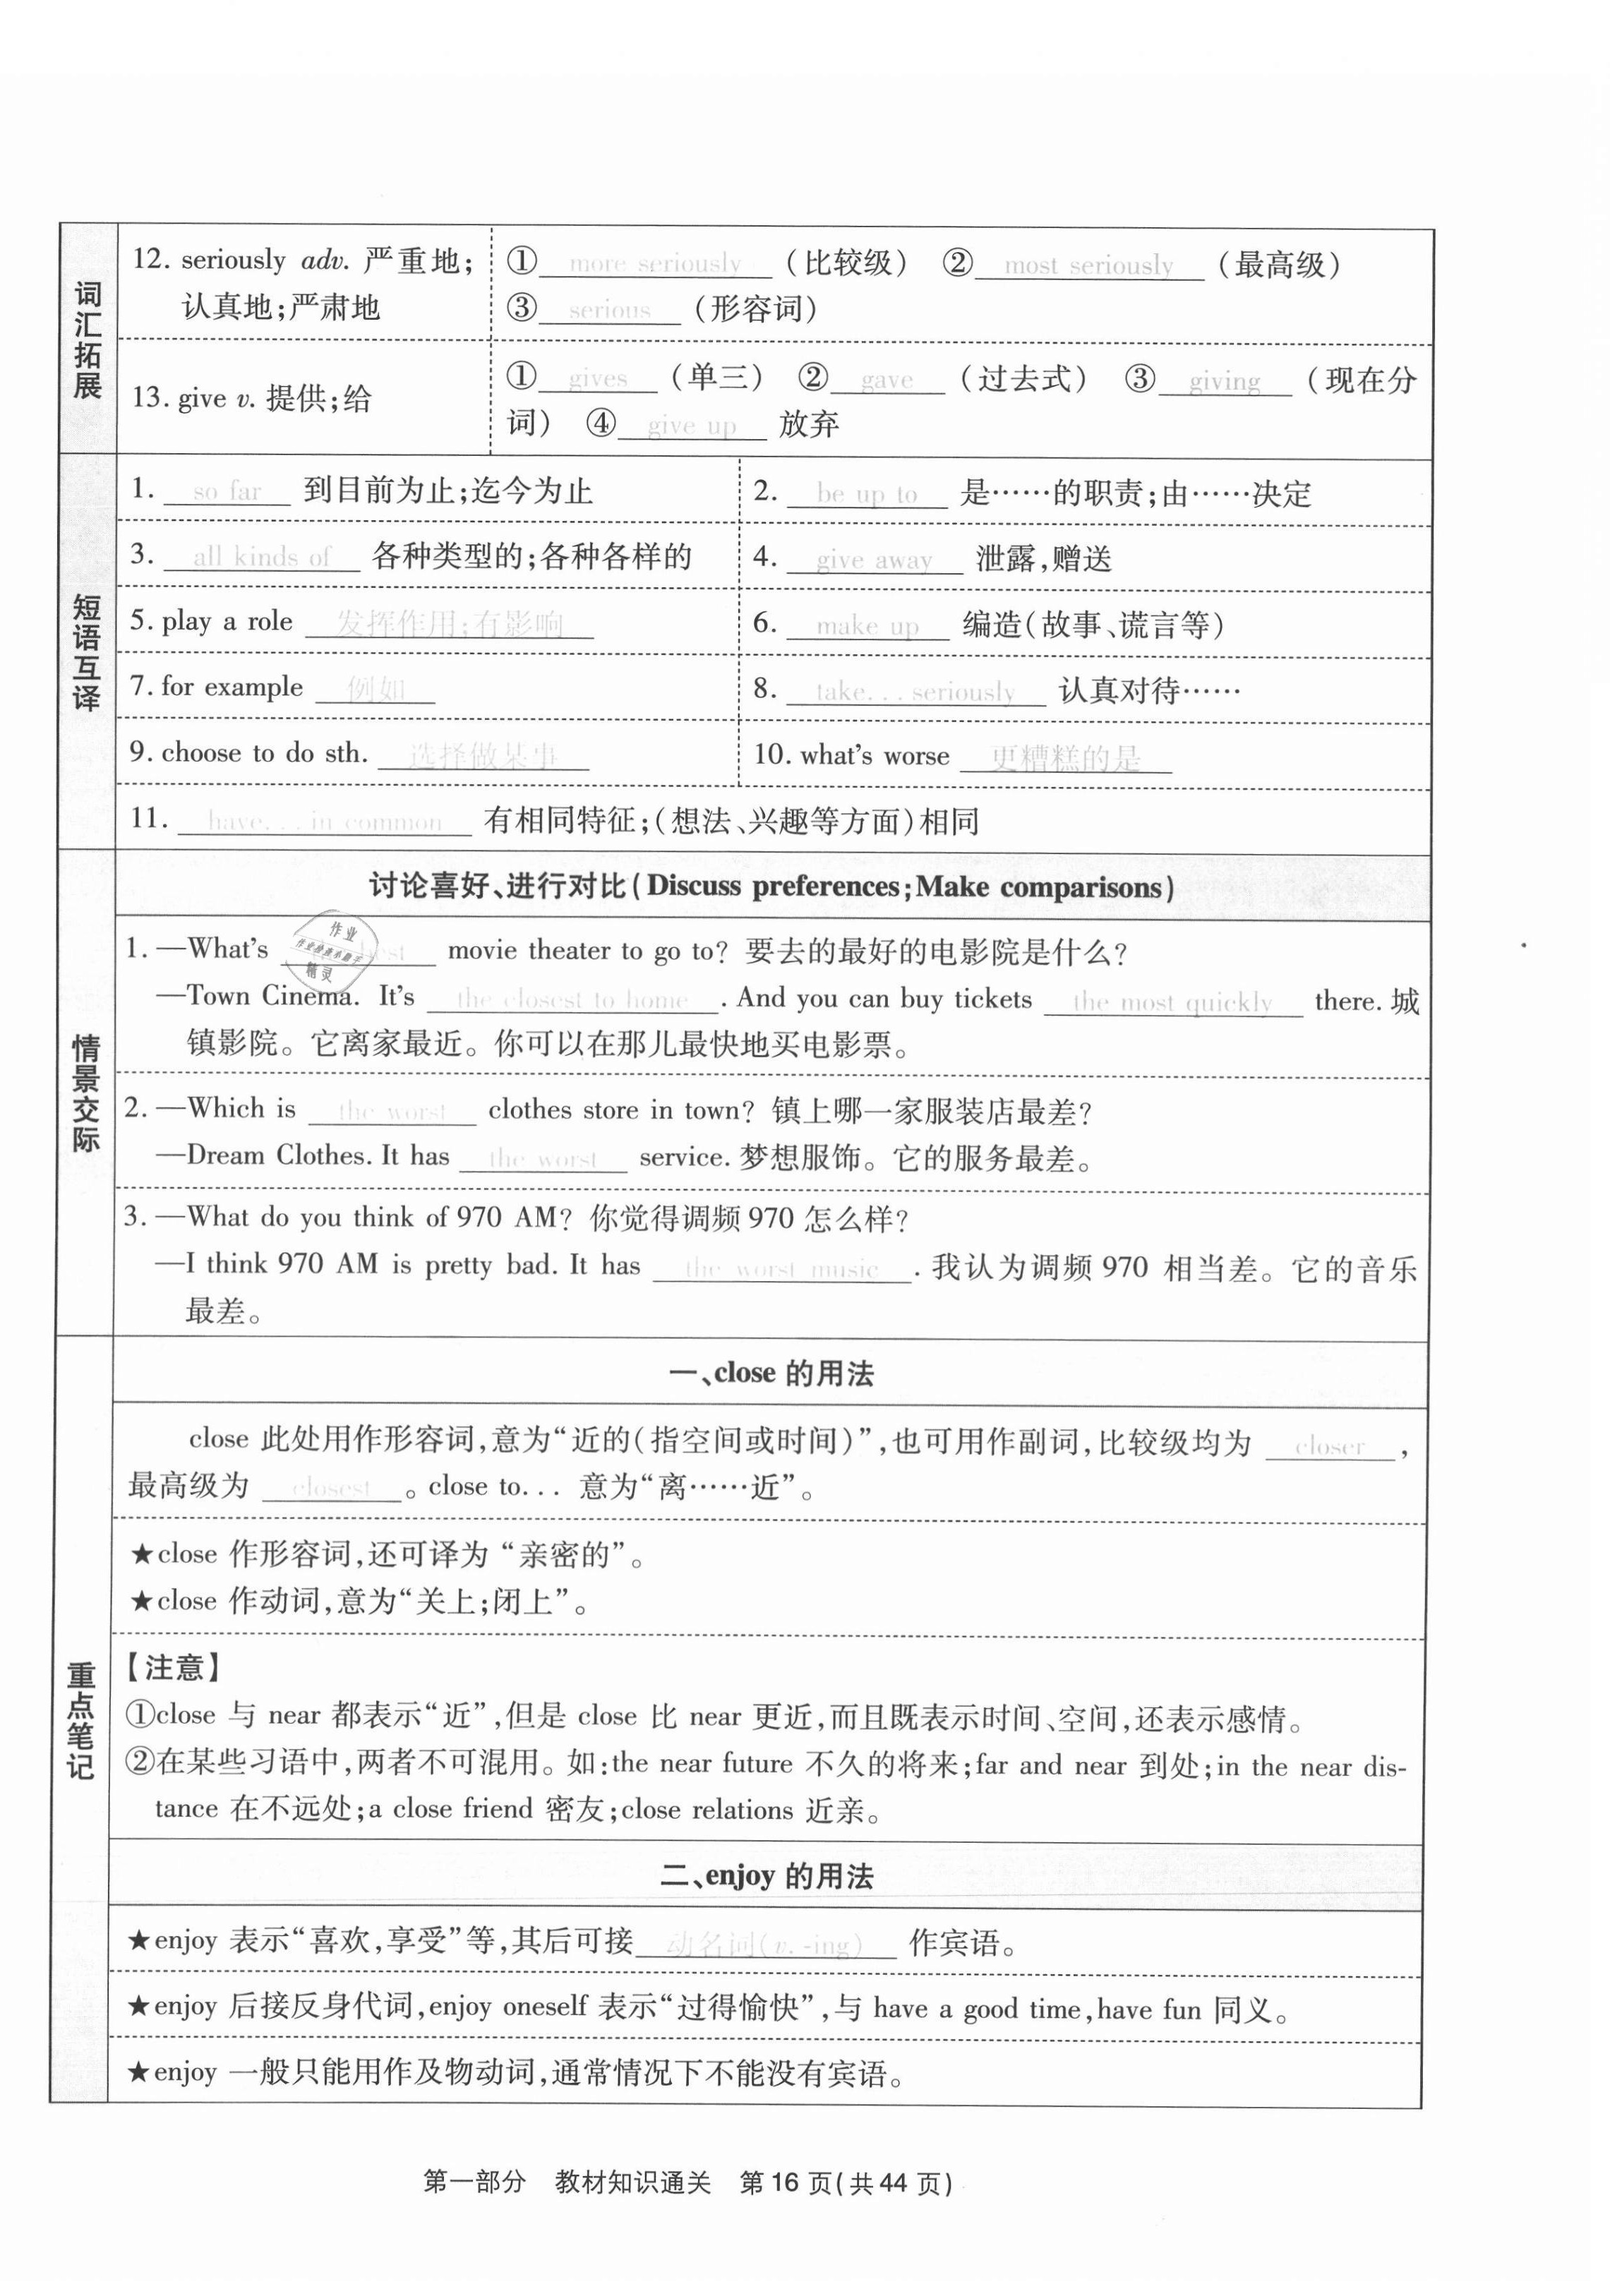 词汇拓展
12. seriously adv. 严重地;
认真地;严肃地
① more seriously (比较级) ② most seriously (最高级)
③ serious (形容词)
13. give v. 提供;给
① gives (单三) ② gave (过去式) ③ giving (现在分
词) ④ give up 放弃
短语互译
1. so far 到目前为止;迄今为止
2. be up to 是……的职责;由……决定
3. all kinds of 各种类型的;各种各样的
4. give away 泄露,赠送
5. play a role 发挥作用;有影响
6. make up 编造(故事、谎言等)
7. for example 例如
8. take... seriously 认真对待……
9. choose to do sth. 选择做某事
10. what's worse 更糟糕的是
11. have... in common 有相同特征;(想法、兴趣等方面)相同
情景交际
讨论喜好、进行对比(Discuss preferences;Make comparisons)
1. —What's movie theater to go to? 要去的最好的电影院是什么?
作业
作业检查小助手
精灵
—Town Cinema. It's the closest to home . And you can buy tickets the most quickly there. 城
镇影院。它离家最近。你可以在那儿最快地买电影票。
2. —Which is the worst clothes store in town? 镇上哪一家服装店最差?
—Dream Clothes. It has the worst service. 梦想服饰。它的服务最差。
3. —What do you think of 970 AM? 你觉得调频 970 怎么样?
—I think 970 AM is pretty bad. It has the worst music . 我认为调频 970 相当差。它的音乐
最差。
重点笔记
一、close 的用法
close 此处用作形容词,意为“近的(指空间或时间)”,也可用作副词,比较级均为 closer ,
最高级为 closest 。close to... 意为“离……近”。
★close 作形容词,还可译为 “亲密的”。
★close 作动词,意为“关上;闭上”。
【注意】
①close 与 near 都表示“近”,但是 close 比 near 更近,而且既表示时间、空间,还表示感情。
②在某些习语中,两者不可混用。如:the near future 不久的将来;far and near 到处;in the near dis-
tance 在不远处;a close friend 密友;close relations 近亲。
二、enjoy 的用法
★enjoy 表示“喜欢,享受”等,其后可接 动名词(v. -ing) 作宾语。
★enjoy 后接反身代词,enjoy oneself 表示“过得愉快”,与 have a good time,have fun 同义。
★enjoy 一般只能用作及物动词,通常情况下不能没有宾语。
第一部分 教材知识通关 第 16 页(共 44 页)